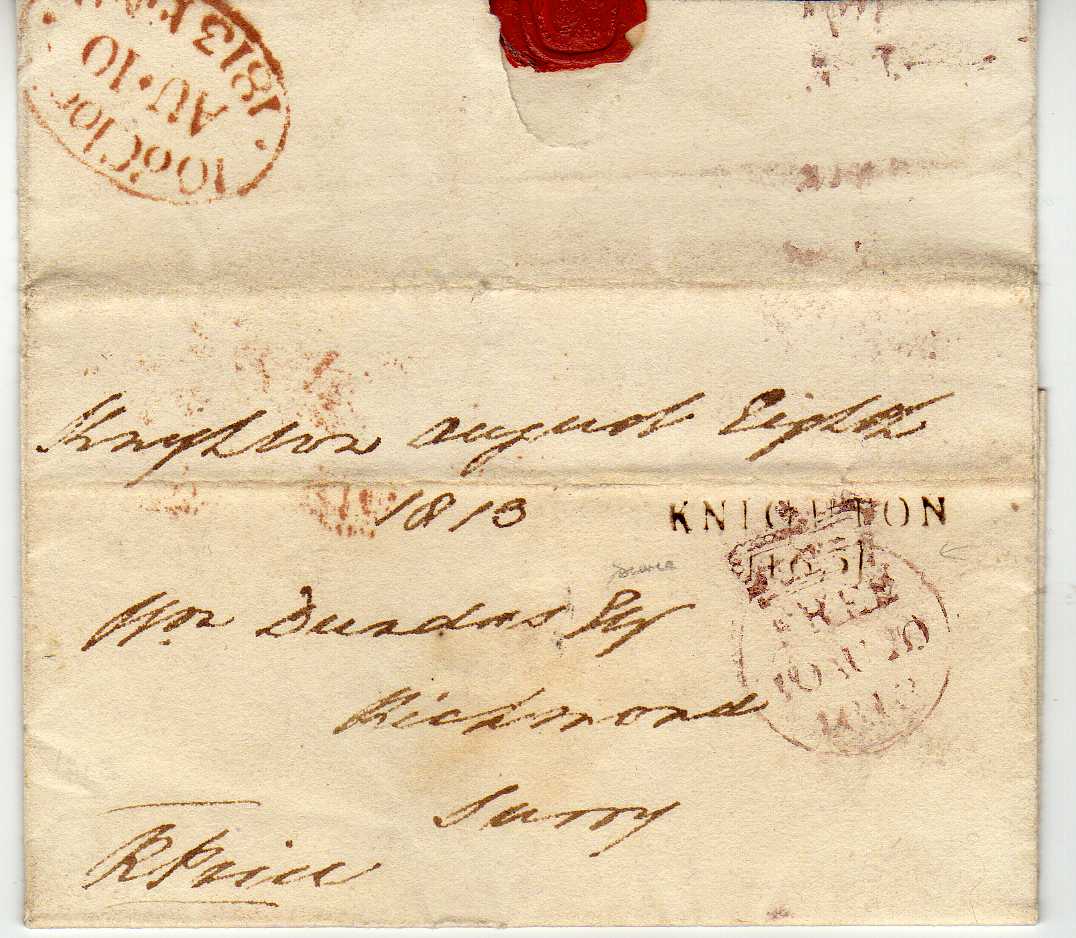 10o'Clock
AU·10
1813
Knighton august Eighth
1813
KNIGHTON
Wm Dundas Esq
Richmond
Surry
RPrice